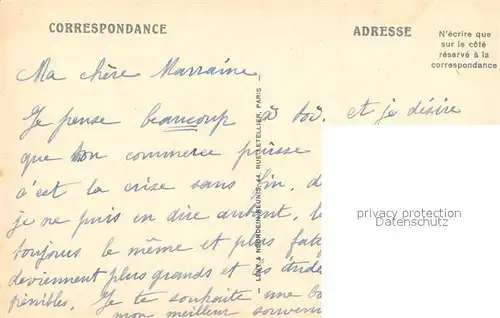 CORRESPONDANCE
ADRESSE
N'écrire que
sur le côté
réservé à la
correspondance
Ma chère Marraine,
Je pense beaucoup à toi, et je désire
que ton commerce puisse
c'est la crise sans fin. d
je ne puis en dire autant, le
toujours le même et plus
deviennent plus grands et les étude
pénibles. Je te souhaite une bo
mon meilleur souveni
LEVY & NEURDEIN REUNIS, 44, RUE LETELLIER, PARIS
privacy protection
Datenschutz